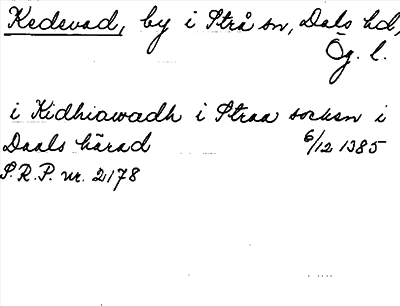 Kedevad, by i Strå sn, Dals hd,
Ög. l.
i Kidhiawadh i Straa socken i
Daals härad 6/12 1385
S.R.P. nr. 2178